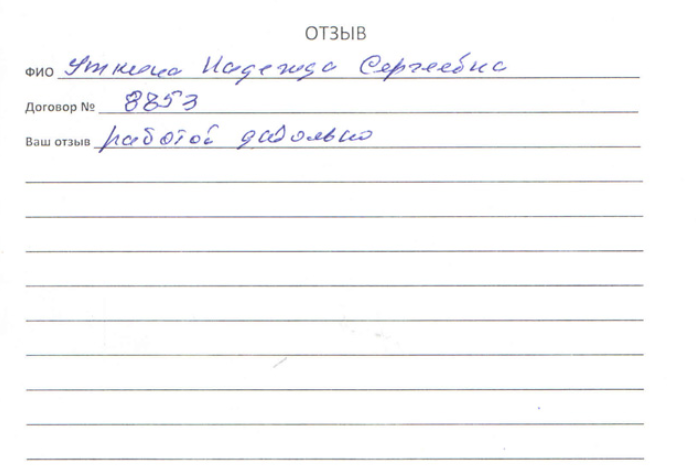 ОТЗЫВ
ФИО Уткина Надежда Сергеевна
Договор № 8853
Ваш отзыв работой довольна